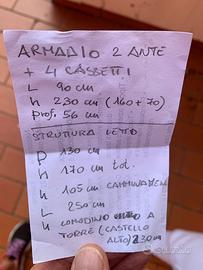 ARMADIO 2 ANTE
+ 4 CASSETTI
L 90 cm
h 230 cm (160+70)
Prof. 56 cm
STRUTTURA LETTO
P 130 cm
h 170 tot.
h 105 cm
L 250 cm
h COMODINO A
TORRE (CASTELLO
ALTO) 230 cm